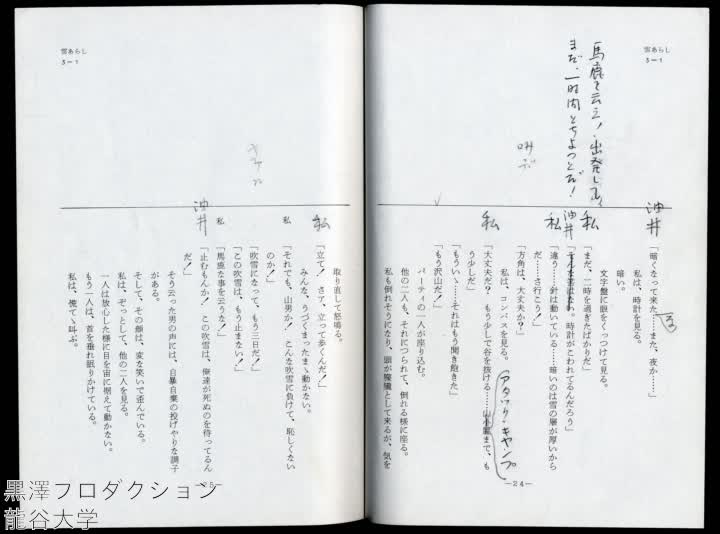 雪あらし
3―1
馬鹿を云え！出発して
まだ、一時間とちょっとだ！
叫ぶ
油井
「暗くなって来た……また、夜か……」
私は、時計を見る。
暗い。
文字盤に眼をくっつけて見る。
私
「まだ、二時を過ぎたばかりだ」
油井
時計がこわれてるんだろう」
私
「違う……針は動いている……暗いのは雪の層が厚いから
だ……さ行こう！」
「方角は、大丈夫か？」
私は、コンパスを見る。
アタック・キャンプ
私
「大丈夫だ？　もう少しで谷を抜ける……山小屋まで、も
う少しだ」
「もうい丶……それはもう聞き飽きた」
「もう沢山だ！」
パーティの一人が座り込む。
他の二人も、それにつられて、倒れる様に座る。
私も倒れそうになり、頭が朦朧として来るが、気を
―24―
雪あらし
3―1
取り直して怒鳴る。
私
「立て！　さア、立って歩くんだ！」
みんな、うづくまったま丶動かない。
私
「それでも、山男か！　こんな吹雪に負けて、恥しくない
のか！」
「吹雪になって、もう三日だ！」
「この吹雪は、もう止まない！」
私
「馬鹿な事を云うな！」
油井
「止むもんか！　この吹雪は、俺達が死ぬのを待ってるん
だ！」
そう云った男の声には、自暴自棄の投げやりな調子
がある。
そして、その顔は、変な笑いで歪んでいる。
私は、ぞっとして、他の二人を見る。
一人は放心した様に目を宙に据えて動かない。
もう一人は、首を垂れ眠りかけている。
私は、慌て丶叫ぶ。
―25―
黒澤プロダクション
龍谷大学